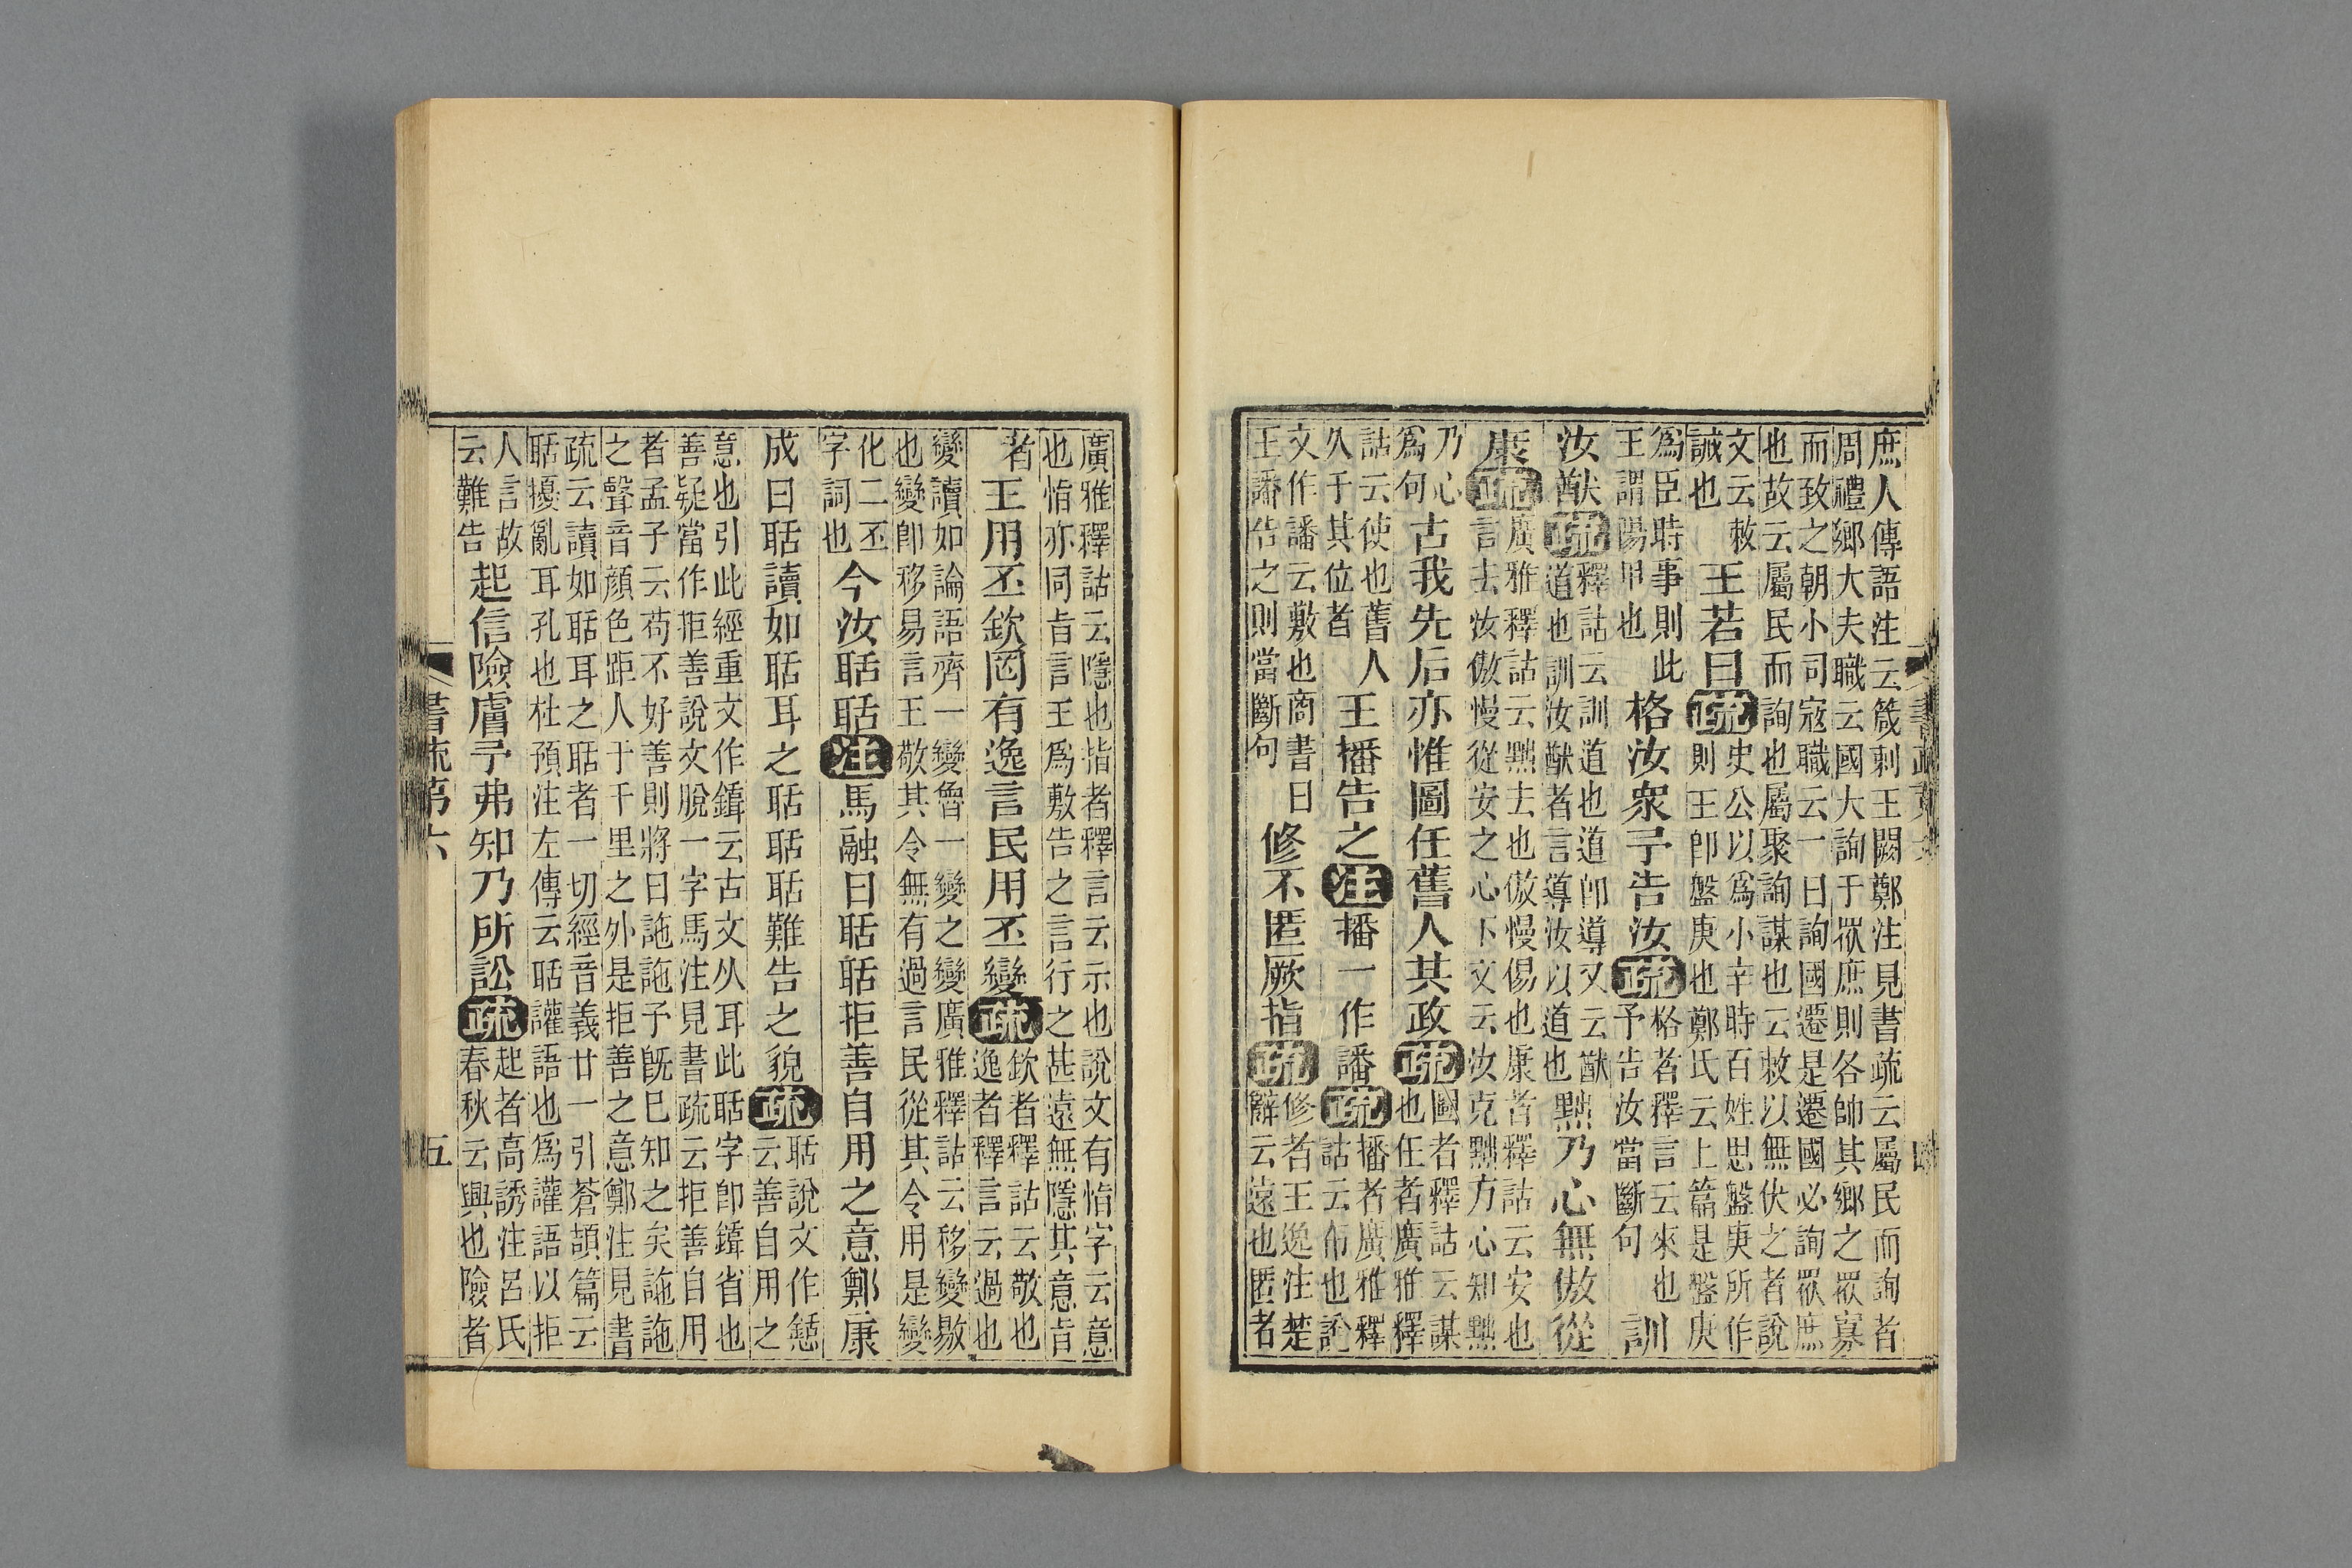 庶人傳語注云箴刺王闕鄭注見書疏云屬民而詢者
周禮鄉大夫職云國大詢于眾庶則各帥其鄉之眾寡
而致之朝小司寇職云一曰詢國遷是遷國必詢眾庶
也故云屬民而詢也屬聚詢謀也云敕以無伏之者說
文云敕
誡也
王若曰疏
史公以爲小辛時百姓思盤庚所作
則王卽盤庚也鄭氏云上篇是盤庚
爲臣時事則此
王謂陽甲也
格汝眾予告汝疏
格者釋言云來也
予告汝當斷句
訓
汝猷疏
釋詁云訓道也道卽導又云猷
道也訓汝猷者言導汝以道也
黜乃心無傲從
康疏
廣雅釋詁云黜去也傲慢傷也康者釋詁云安也
言去汝傲慢從安之心下文云汝克黜方心知黜
乃心
爲句
古我先后亦惟圖任舊人共政疏
圖者釋詁云謀
也任者廣雅釋
詁云使也舊人
久于其位者
王播告之注播一作譒疏
播者廣雅釋
詁云布也說
文作譒云敷也商書曰
王譒告之則當斷句
修不匿厥指疏
修者王逸注楚
辭云遠也匿者
廣雅釋詁云隱也指者釋言云示也說文有恉字云意
也恉亦同旨言王爲敷告之言行之甚遠無隱其意旨
者
王用丕欽罔有逸言民用丕變疏
欽者釋詁云敬也
逸者釋言云過也
變讀如論語齊一變魯一變之變廣雅釋詁云移變敭
也變卽移易言王敬其令無有過言民從其令用是變
化二丕
字詞也
今汝聒聒注馬融曰聒聒拒善自用之意鄭康
成曰聒讀如聒耳之聒聒聒難告之貌疏
聒說文作懖
云善自用之
意也引此經重文作𦧺云古文从耳此聒字卽𦧺省也
善疑當作拒善說文脫一字馬注見書疏云拒善自用
者孟子云苟不好善則將曰訑訑予旣已知之矣訑訑
之聲音顏色距人于千里之外是拒善之意鄭注見書
疏云讀如聒耳之聒者一切經音義廿一引蒼頡篇云
聒擾亂耳孔也杜預注左傳云聒讙語也爲讙語以拒
人言故
云難告
起信險膚予弗知乃所訟疏
起者高誘注呂氏
春秋云興也險者
書疏第六
五